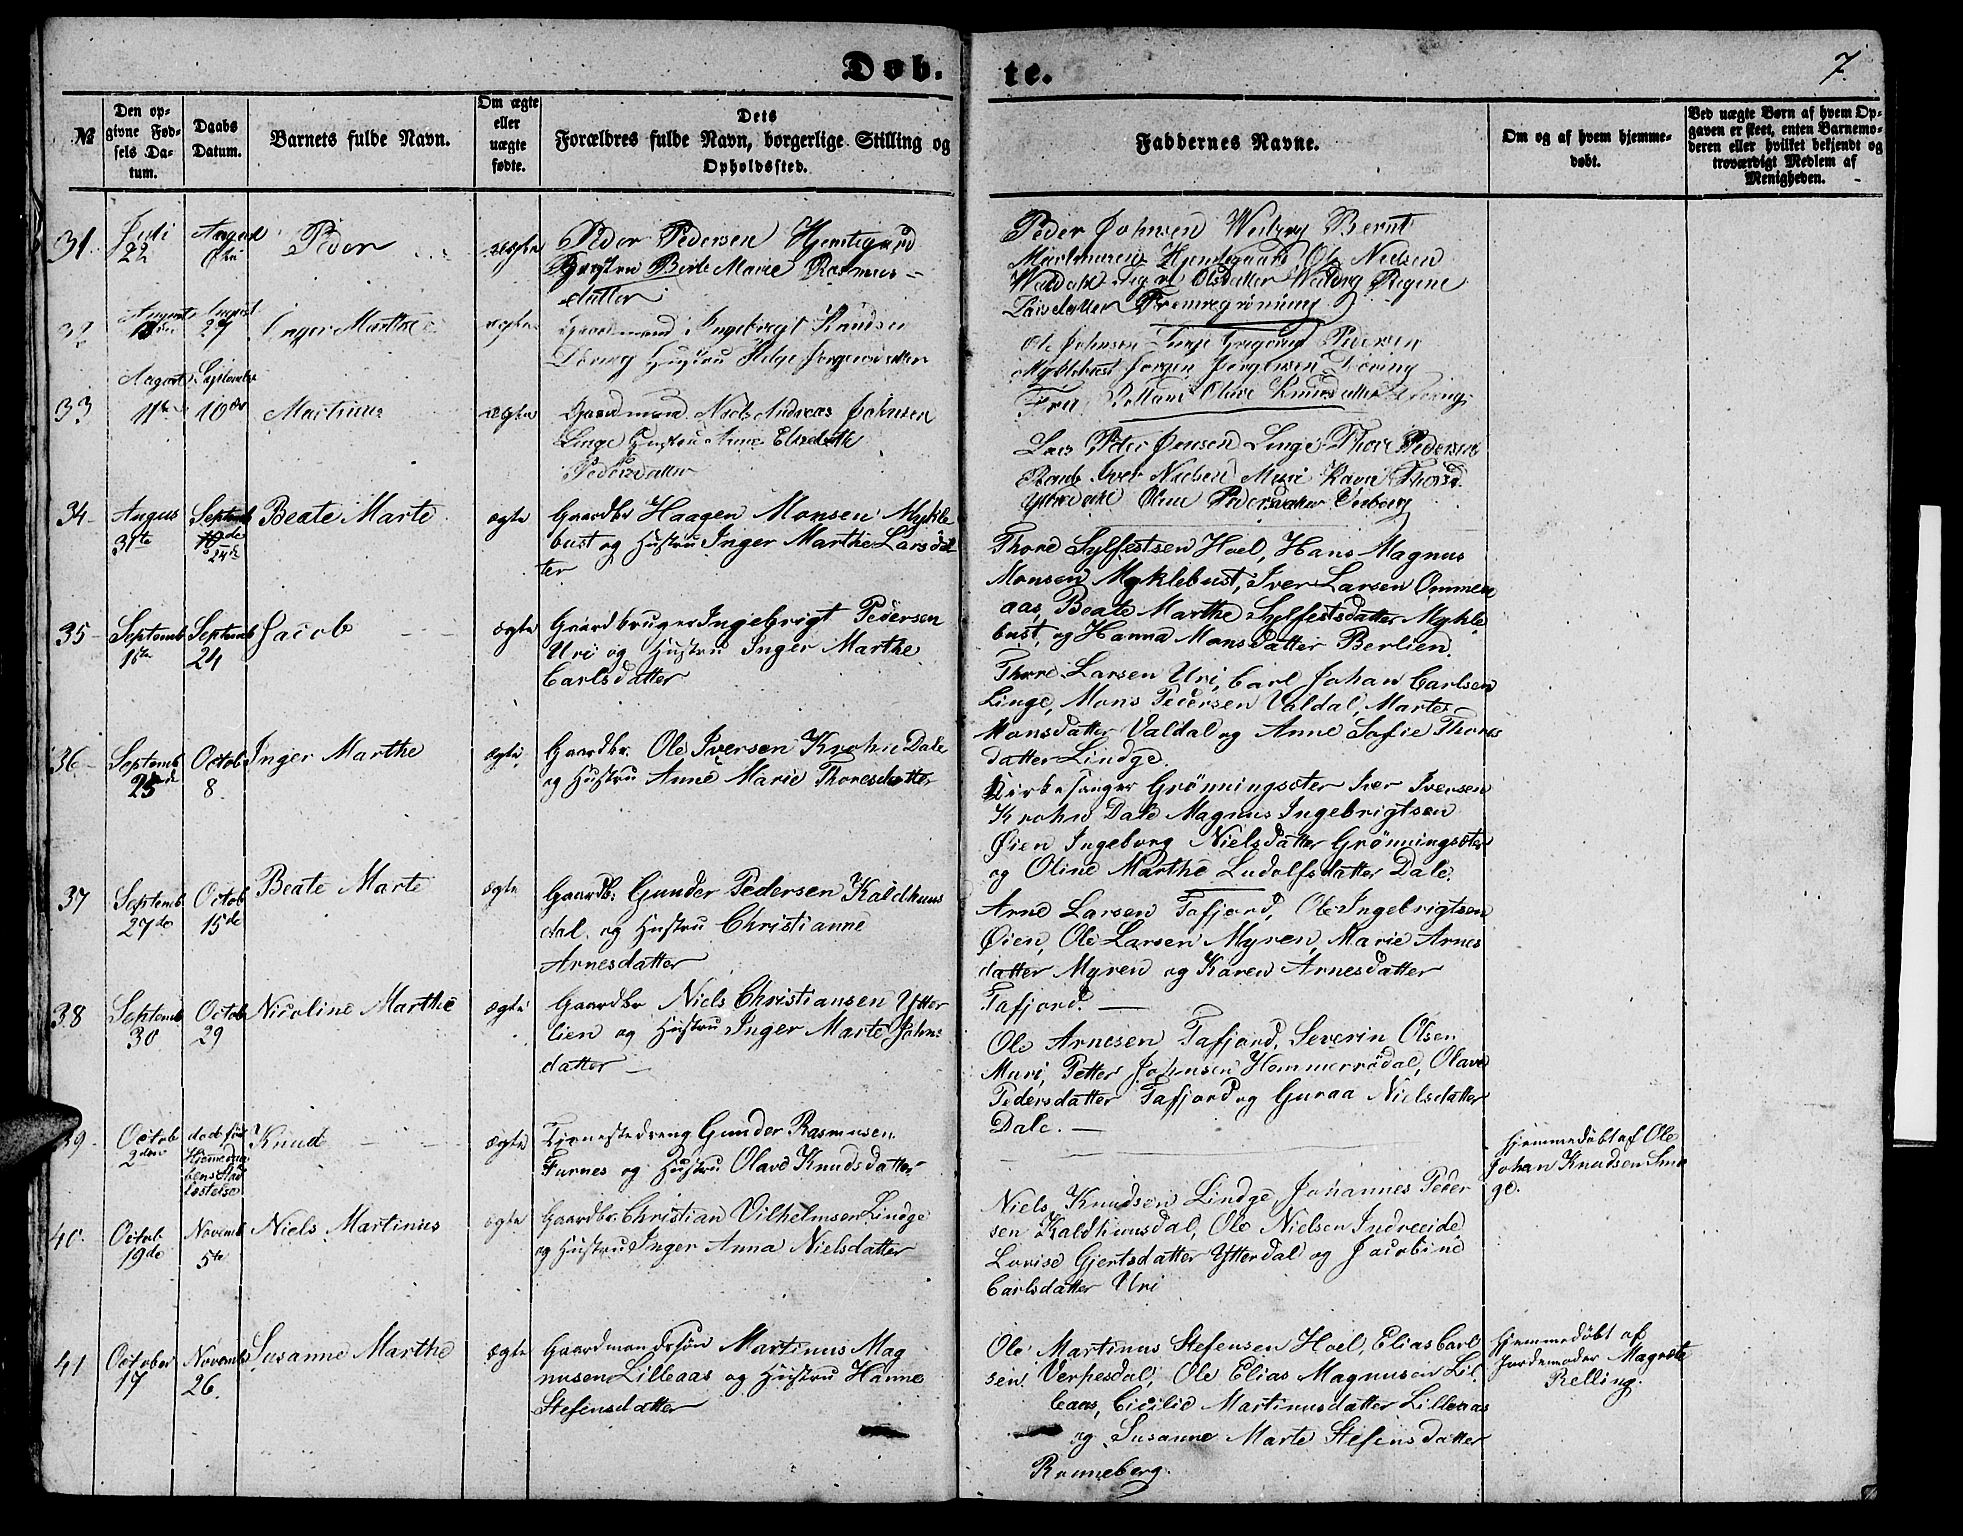 Døb.
te.
7.
№
Den op-
givne Fød-
sels Da-
tum.
Daabs
Datum.
Barnets fulde Navn.
Om ægte
eller
uægte
fødte.
Dets
Forældres fulde Navn, borgerlige Stilling og
Opholdssted.
Faddernes Navne.
Om og af hvem hjemme-
døbt.
Ved uægte Børn af hvem Op-
gaven er skeet, enten Barnemo-
deren eller hvilket bekjendt og
troværdigt Medlem af
Menigheden.
31. Juli 22 August Peder ægte Peder Pedersen
Berte Marie Rasmus-
datter
Peder Johnsen Bernt
Ole Nielsen
Olsdatter
32 August August 27 Inger Marthe ægte Gaardmand Ingebrigt Knudsen
Døving Hustru Jørgensdatter
Ole Johnsen Pedersen
Myklebust Jørgen Jørgensen Døving
Olave Knudsdatter
33 August 11te September 10de Martinus ægte Gaardmand Niels Andreas Johnsen
Linge Hustru Anne Elisabeth
Pedersdatter
Lars Peter Jensen Linge Thore Pedersen
Iver Nielsen Muri
Pedersdatter
34 Augus 31te Septemb 10de 24de Beate Marte ægte Gaardbr Haagen Monsen Mykle
bust og Hustru Inger Marthe Larsdat
ter
Thore Sylfestsen Hoel, Hans Magnus
Monsen Myklebust, Iver Larsen Ommen
aas, Beate Marthe Sylfestsdatter Mykle
bust, og Hanna Monsdatter Berlien.
35 Septemb 16te Septemb 24 Jacob ægte Gaardbruger Ingebrigt Pedersen
Uri og Hustru Inger Marthe
Carlsdatter
Thore Larsen Uri, Carl Johan Carlsen
Linge, Mons Pedersen Valdal, Marte
Monsdatter Valdal og Anne Sofie Thores
datter Lindge.
36 Septemb 25de Octob 8. Inger Marthe ægte Gaardbr. Ole Iversen Krohn Dale
og Hustru Anne Marie Thoresdatter
Kirkesanger Grønningsæter Iver Iversen
Krohn Dale Magnus Ingebrigtsen
Øien Ingeborg Nielsdatter Grønningsæter
og Oline Marthe Ludolfsdatter Dale.
37 Septemb 27de Octob 15de Beate Marte ægte Gaardb: Gunder Pedersen Kaldhuus
dal og Hustru Christianne
Arnesdatter
Arne Larsen Tafjord, Ole Ingebrigtsen
Øien, Ole Larsen Myren, Marie Arnes
datter Myren og Karen Arnesdatter
Tafjord.
38 Septemb 30 Octob 29 Nicoline Marthe ægte Gaardbr Niels Christiansen Ytter
lien og Hustru Inger Marte Johns
datter
Ole Arnesen Tafjord, Severin Olsen
Muri, Petter Johnsen Hommerødal, Olave
Pedersdatter Tafjord og Guraa Nielsdatter
Dale.
39 Octob 2den død før
Knud ægte Tjenestedreng Gunder Rasmusen
Furnes og Hustru Olave Knudsdatter
Hjemmedøbt af Ole
Johan Knudsen Smo
ge.
40. Octob. 19de Novemb 5te Niels Martinus ægte Gaardbr. Christian Vilhelmsen Lindge
og Hustru Inger Anna Nielsdatter
Niels Knudsen Lindge, Johannes Peder
sen Kaldhuusdal, Ole Nielsen Indreeide,
Lovise Gjertsdatter Ytterdal og Jacobine
Carlsdatter Uri
41 October 17 Novemb 26. Susanne Marthe ægte Gaardmandssøn Martinus Mag
nusen Lilleaas og Hustru Hanne
Stefensdatter
Ole Martinus Stefensen Hoel, Elias Carl
sen Verpesdal, Ole Elias Magnusen Lil
leaas, Cicilie Martinusdatter Lilleaas
og Susanne Marte Stefensdatter
Ronneberg.
Hjemmedøbt af
Jordemoder Magrete
Relling.